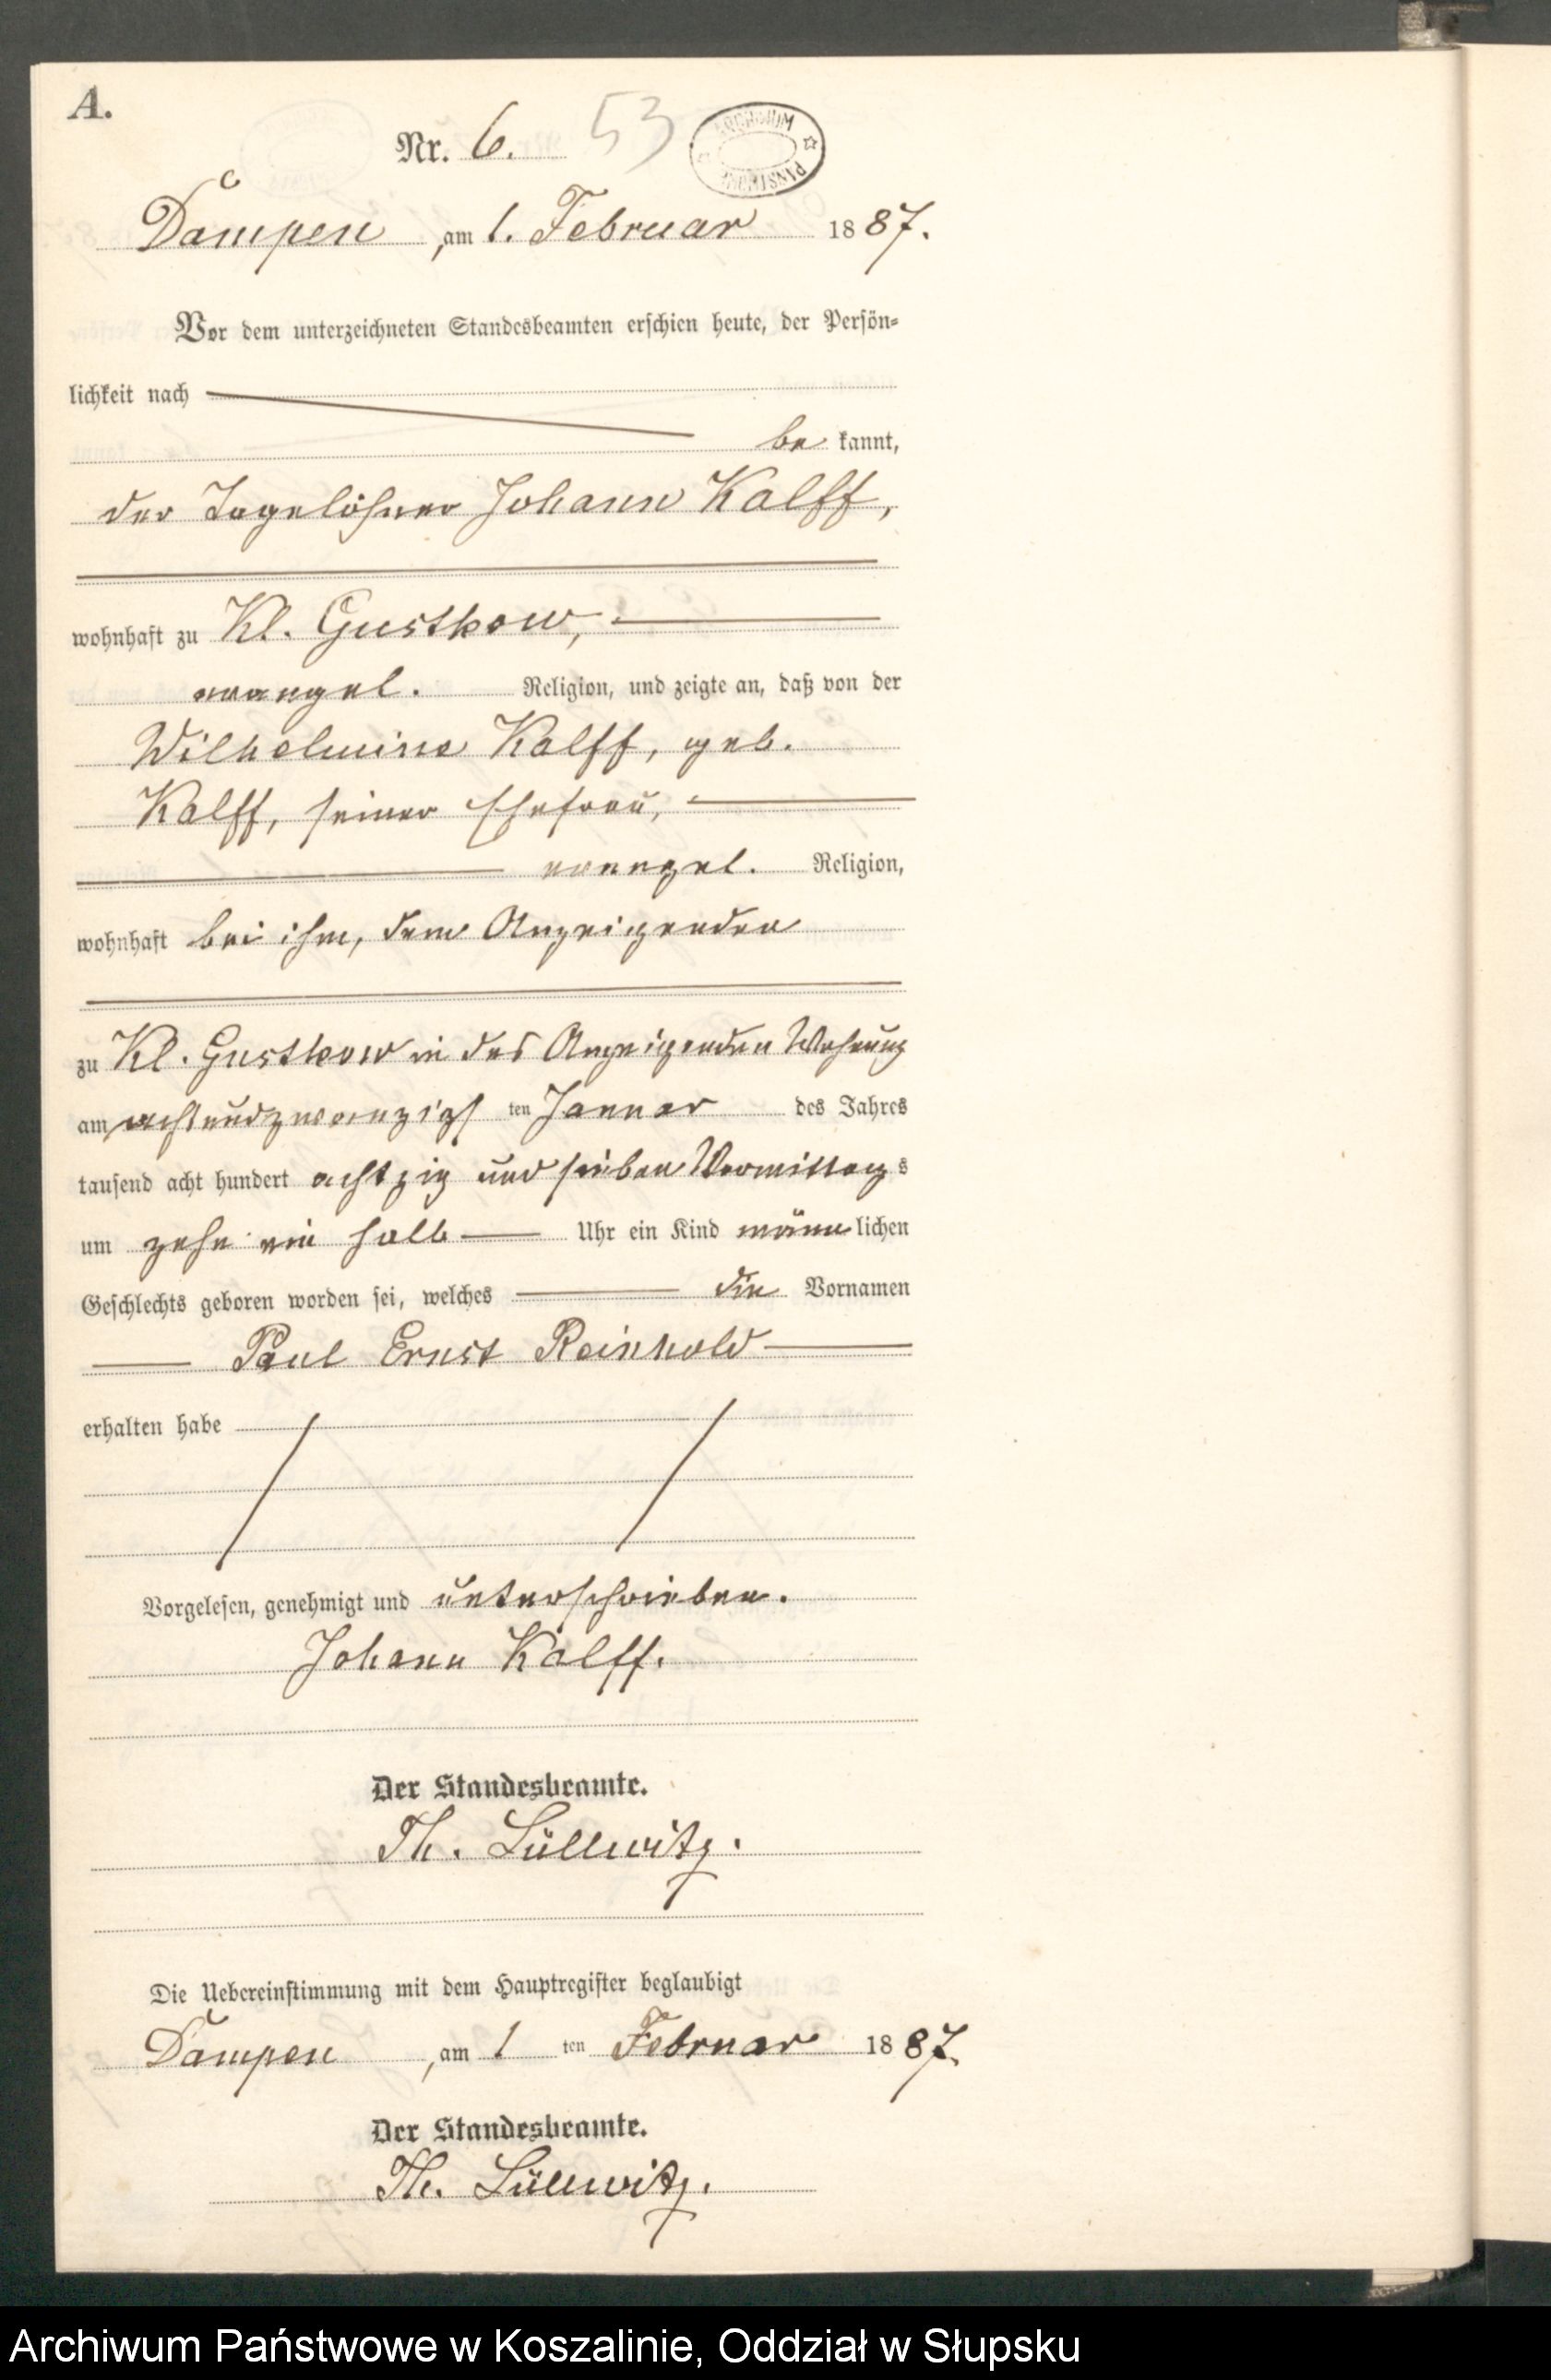 A.
Nr. 6. 53
ARCHIWUM PAŃSTWOWE
Dampen, am 1. Februar 1887.
Vor dem unterzeichneten Standesbeamten erschien heute, der Persön-
lichkeit nach
be kannt,
der Tagelöhner Johann Kalff,
wohnhaft zu Kl. Gustkow,
evangel. Religion, und zeigte an, daß von der
Wilhelmine Kalff, geb.
Kalff, seiner Ehefrau,
evangel. Religion,
wohnhaft bei ihm, dem Anzeigenden
zu Kl. Gustkow in des Anzeigenden Wohnung
am achtundzwanzigsten Januar des Jahres
tausend acht hundert achtzig und sieben Vormittags
um zehn ein halb Uhr ein Kind männlichen
Geschlechts geboren worden sei, welches die Vornamen
Paul Ernst Reinhold
erhalten habe
Vorgelesen, genehmigt und unterschrieben.
Johann Kalff.
Der Standesbeamte.
Th. Lüllwitz.
Die Uebereinstimmung mit dem Hauptregister beglaubigt
Dampen, am 1 ten Februar 1887.
Der Standesbeamte.
Th. Lüllwitz.
Archiwum Państwowe w Koszalinie, Oddział w Słupsku